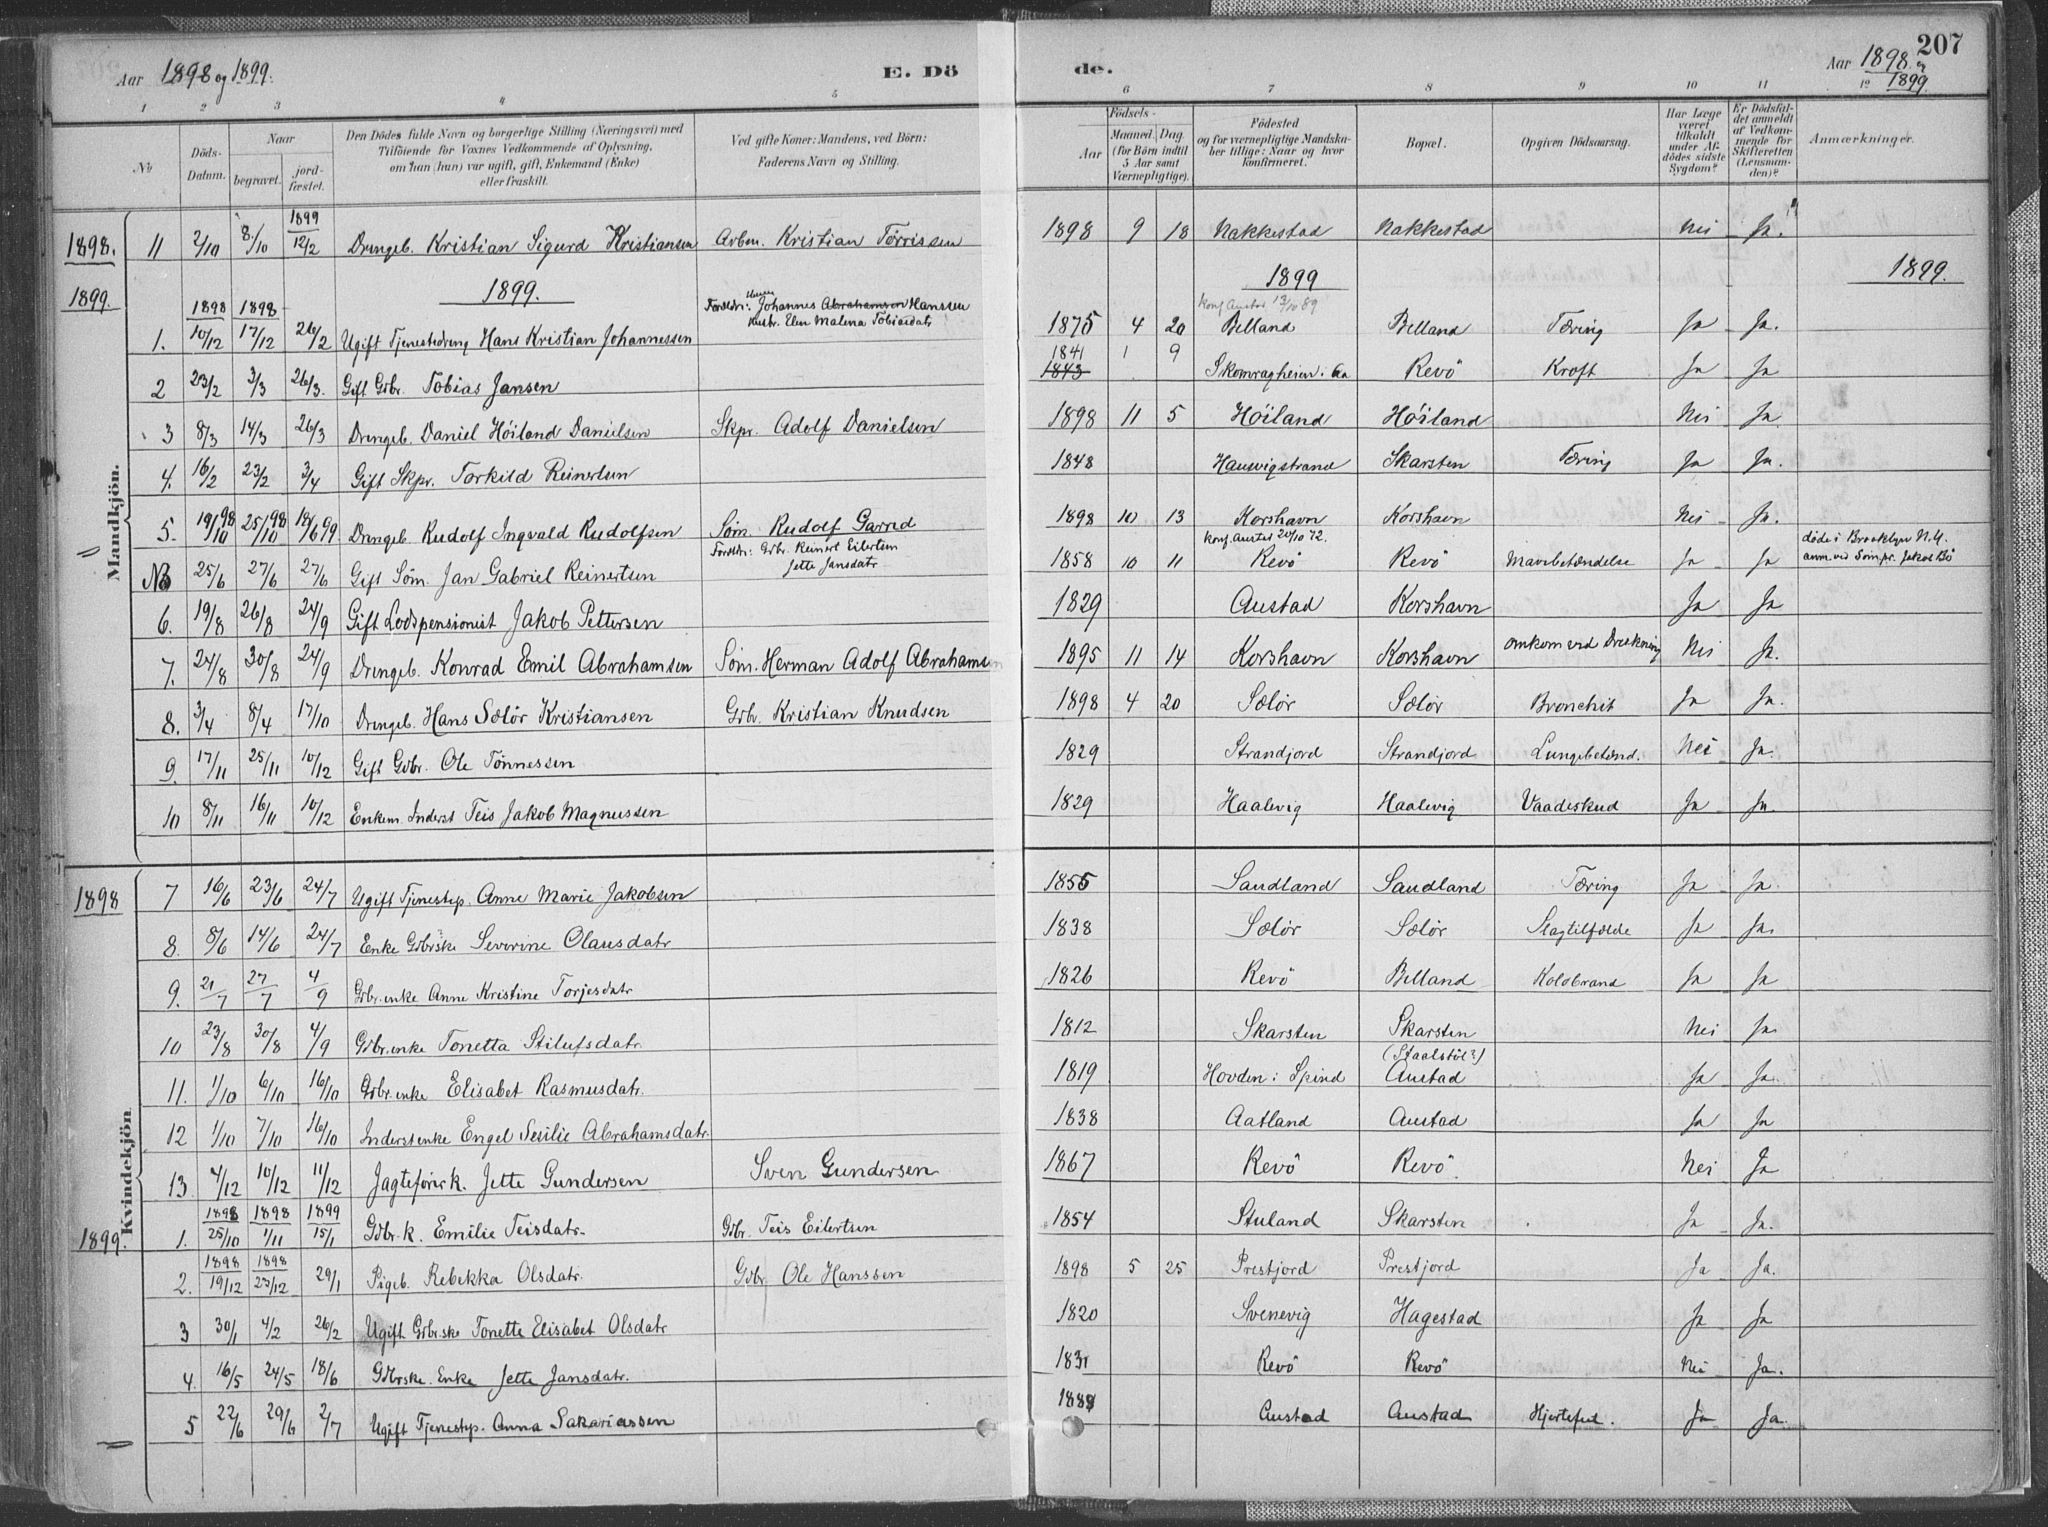 Aar 1898 og 1899. E. Dö de. Aar 1898 og 1899. 207
1 2 3 4 5 6 7 8 9 10 11 12
No
Döds-Datum.
Naar
begravet.
jordfæstet.
Den Dödes fulde Navn og borgerlige Stilling (Næringsvei) med
Tilföiende for Voxnes Vedkommende af Oplysning,
om han (hun) var ugift, gift, Enkemand (Enke)
eller fraskilt.
Ved gifte Koner: Mandens, ved Börn:
Faderens Navn og Stilling.
Födsels-
Aar
Maaned. Dag.
(for Börn indtil
5 Aar samt
Værnepligtige).
Födested
og for værnepligtige Mandskaber tillige: Naar og hvor
konfirmeret.
Bopæl.
Opgiven Dödsaarsag.
Har Læge
været
tilkaldt
under Afdödes sidste
Sygdom?
Er Dödsfaldet anmeldt
af Vedkommende for
Skifteretten
(Lensmanden)?
Anmærkninger.
Mandkjön.
1898. 11 2/10 8/10 1899 12/2 Drengeb. Kristian Sigurd Kristiansen Arbm. Kristian Törrissen 1898 9 18 Nakkestad Nakkestad Nei Ja.
1899. 1899. 1899 1899.
1. 1898 10/12 1898 17/12 26/2 Ugift Tjenestedreng Hans Kristian Johannessen Foreldr: Johannes Abrahamsen Hanssen Hustr. Elen Malena Tobiasdatr 1875 4 20 konf. Austad 13/10 89 Belland Belland Tæring Ja Ja.
2 23/2 3/3 26/3. Gift Gdbr. Tobias Jansen 1841 1843 1 9 Skomragheien i Aa Revö Kræft Ja Ja
3 8/3 14/3 26/3 Drengeb. Daniel Höiland Danielsen Skpr. Adolf Danielsen 1898 11 5 Höiland Höiland Nei Ja.
4. 16/2 23/2 3/4 Gift Skpr. Torkild Reinertsen 1848 Hausvigstrand Skarsten Tæring Ja Ja.
5. 19/10 98 25/10 98 18/6 99 Drengeb. Rudolf Ingvald Rudolfsen Söm. Rudolf Garred 1898 10 13 Korshavn Korshavn Nei Ja.
NB 25/6 27/6 27/6 Gift Söm. Jan Gabriel Reinertsen Foreldr: Gdbr. Reinert Eilertsen Jette Jansdatr 1858 10 11 konf. Austad 20/10 72. Revö Revö Mavebetændelse Ja Ja döde i Brooklyn N.Y. anm ved Söm.pr. Jakob Bö
6. 19/8 26/8 24/9 Gift Lodspensionist Jakob Pettersen 1829 Austad Korshavn Ja Ja
7. 24/8 30/8 24/9 Drengeb. Konrad Emil Abrahamsen Söm. Herman Adolf Abrahamsen 1895 11 14 Korshavn Korshavn omkom ved Drukning Nei Ja.
8. 3/4 8/4 17/10 Drengeb. Hans Sælör Kristiansen Gdbr. Kristian Knudsen 1898 4 20 Sælör Sælör Bronchit Ja Ja.
9. 17/11 25/11 10/12 Gift Gdbr. Ole Tönnessen 1829 Strandjord Strandjord Lungebetænd. Nei Ja.
10 8/11 16/11 10/12 Enkem. Inderst Teis Jakob Magnussen 1829 Haalevig Haalevig Vaadeskud Ja Ja
Kvindekjön.
1898 7 16/6 23/6 24/7 Ugift Tjenestep. Anne Marie Jakobsen 1855 Sandland Sandland Tæring Ja Ja.
8. 8/6 14/6 24/7 Enke Gdbrske Severine Olausdatr 1838 Sælör Sælör Slagtilfælde Ja Ja.
9. 21/7 27/7 4/9 Gdbr.enke Anne Kristine Torjesdatr 1826 Revö Belland Koldbrand Ja Ja
10 23/8 30/8 4/9 Gdbr.enke Tonetta Stilufsdatr. 1812 Skarsten Skarsten Nei Ja.
11. 1/10 6/10 16/10 Gdbr.enke Elisabet Rasmusdatr. 1819 Hovden i Spind (Staalstöl?) Austad Ja Ja.
12 1/10 7/10 16/10 Inderstenke Engel Sesilie Abrahamsdatr. 1838 Aatland Austad Ja Ja
13. 4/12 10/12 11/12 Jagteförerk. Jette Gundersen Sven Gundersen 1867 Revö Revö Nei Ja
1899. 1. 1898 25/10 1898 1/11 1899 15/1 Gdbr.k. Emilie Teisdatr. Gdbr. Teis Eilertsen 1854 Stuland Skarsten Ja Ja.
2. 1898 19/12 1898 23/12 29/1 Pigeb. Rebekka Olsdatr. Gdbr. Ole Hanssen 1898 5 25 Prestjord Prestjord Ja Ja.
3 30/1 4/2 26/2 Ugift Gdbr.ske Tonette Elisabet Olsdatr 1820 Svenevig Hagestad Ja Ja
4. 16/5 24/5 18/6 Gdbrske. Enke Jette Jansdatr. 1831 Revö Revö Nei Ja.
5 22/6 29/6 2/7 Ugift Tjenestep. Anna Sakariassen Austad Austad Hjertefeil. Ja Ja.